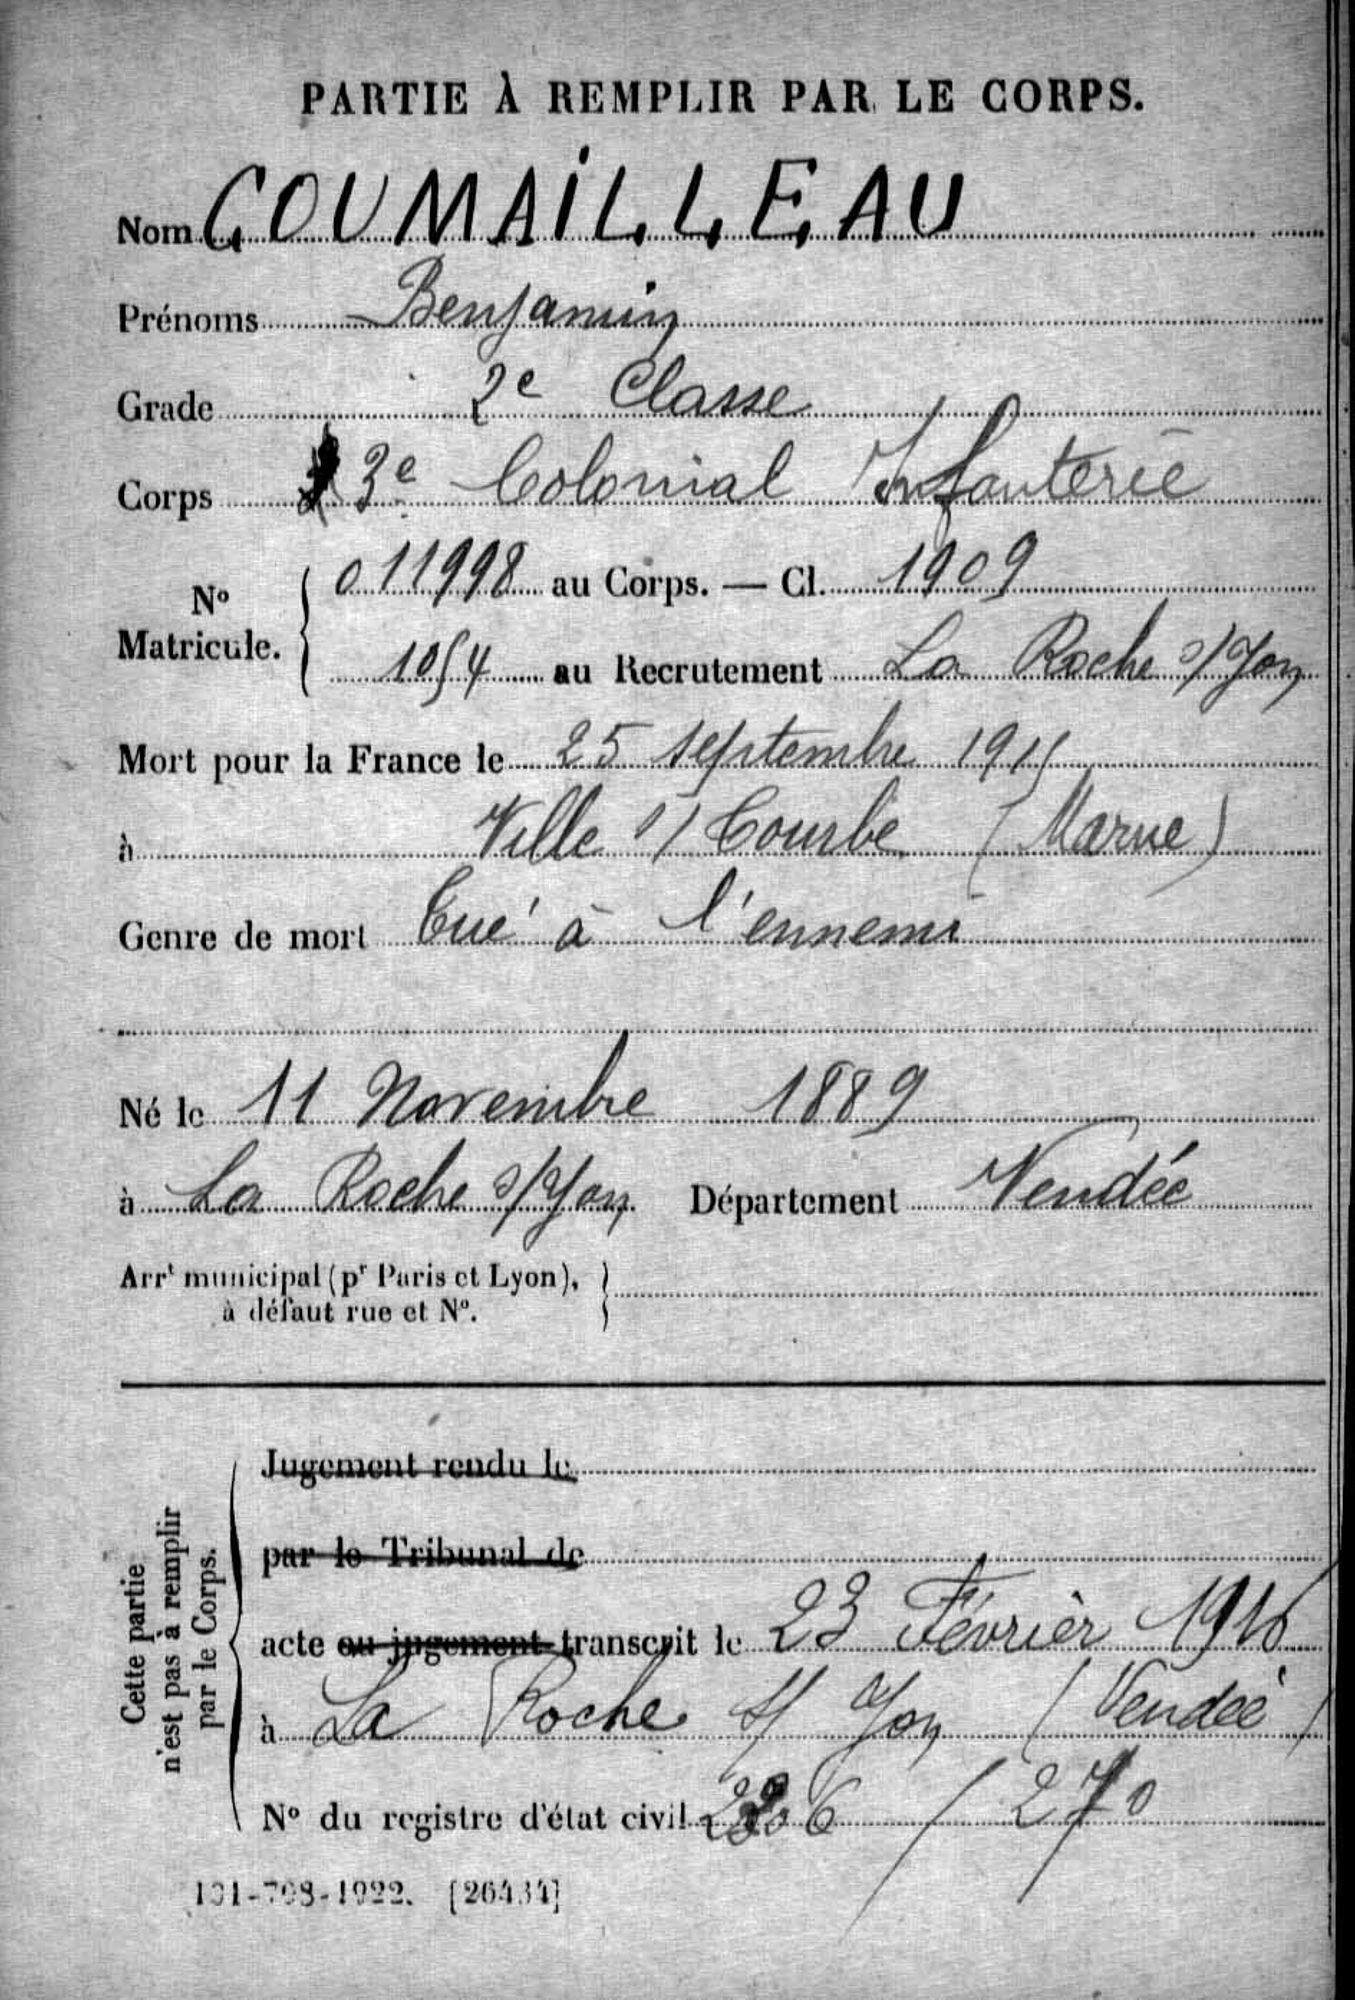 PARTIE À REMPLIR PAR LE CORPS.
Nom COUMAILLEAU
Prénoms Benjamin
Grade 2e Classe
Corps 3e Colonial Infanterie
No Matricule. 011998 au Corps. — Cl. 1909
1054 au Recrutement La Roche s/Yon
Mort pour la France le 25 septembre 1915
à Ville s/ Tourbe (Marne)
Genre de mort Tué à l'ennemi
Né le 11 Novembre 1889
à La Roche s/Yon Département Vendée
Arrt municipal (pr Paris et Lyon),
à défaut rue et No.
Cette partie
n'est pas à remplir
par le Corps.
Jugement rendu le
par le Tribunal de
acte ou jugement transcrit le 23 Février 1916
à La Roche s/ Yon (Vendée)
No du registre d'état civil / 270
101-708-1922. [26434]